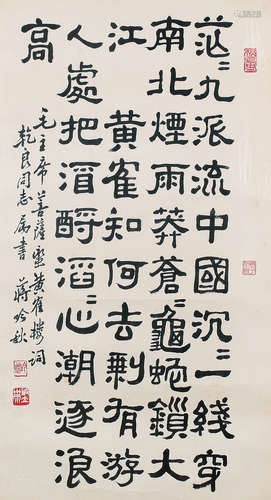 茫〻九派流中國沉〻一綫穿
南北煙雨莽蒼〻龜蛇鎖大
江 黃隺知何去剩有游
人處把酒酹滔〻心潮逐浪
高
毛主席菩薩蠻黃隺樓詞
乾良同志屬書 蔣吟秋